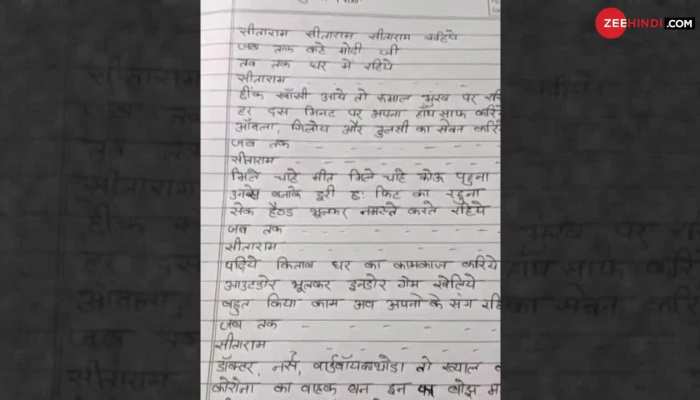 ZEEHINDI.COM
सीताराम सीताराम सीताराम कहिये
जब तक कहे मोदी जी
तब तक घर मे रहिये
सीताराम - - - -
छींक खाँसी आये तो रूमाल मुख पर
हर दस मिनट पर अपना हाँथ साफ करिये
आँवला, गिलोय और तुलसी का सेवन करिये
जब तक - - - -
सीताराम - - - -
मिले चाहे मीत मिले चाहे कोऊ पहुना
उनसे बनाके दूरी छः फिट का रहुना
सेक हैण्ड भूलकर नमस्ते करते रहिये
जब तक - - - -
सीताराम - - - -
पढ़िये किताब घर का कामकाज करिये
आउटडोर भूलकर इनडोर गेम खेलिये
बहुत किया काम अब अपनो के संग
जब तक - - - -
सीताराम - - - -
डॉक्टर, नर्स, वार्डबॉयका थोडा तो ख्याल
कोरोना का वाहक बन इन का बोझ